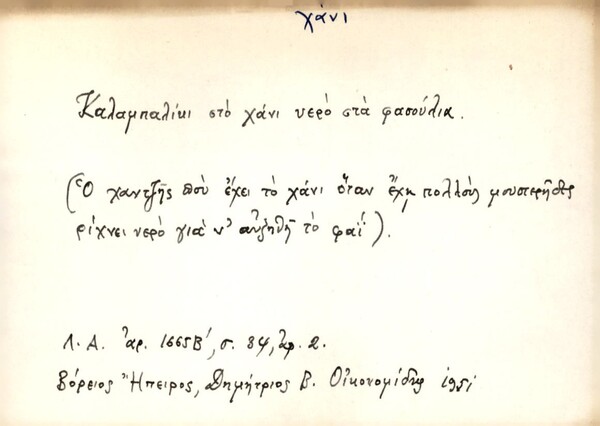 χάνι
Καλαμπαλίκι στὸ χάνι νερὸ στὰ φασούλια.
(Ὁ χαντζῆς ποὺ ἔχει τὸ χάνι ὅταν ἔχῃ πολλοὺς μουστερῆδες
ρίχνει νερὸ γιὰ ν' αὐξηθῇ τὸ φαΐ).
Λ. Α. ἀρ. 1665Β', σ. 84, ἀρ. 2.
Βόρειος Ἤπειρος, Δημήτριος Β. Οἰκονομίδης 1951